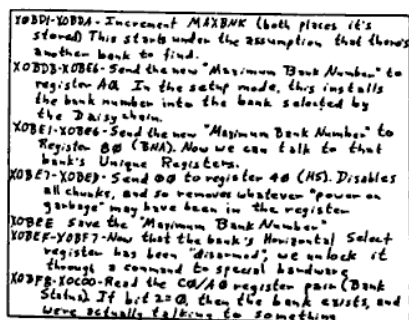 X0BD1-X0BDA - Increment MAXBNK (both places it's
stored) This starts under the assumption that there's
another bank to find.
X0BDB-X0BE0 - Send the new "Maximum Bank Number" to
register A0. In the setup mode, this installs
the bank number into the bank selected by
the Daisychain.
X0BE1-X0BE6 - Send the new "Maximum Bank Number" to
Register 80 (BNA). Now we can talk to that
bank's Unique Registers.
X0BE7-X0BED - Send 00 to register 40 (HS). Disables
all chunks, and so removes whatever "power on
garbage" may have been in the register
X0BEE Save the "Maximum Bank Number"
X0BEF-X0BF7 - Now that the bank's Horizontal Select
register has been "disarmed", we unlock it
through a command to special hardware
X0BF8-X0C00 - Read the C0/A0 register pair (Bank
Status). If bit 2=0, then the bank exists, and
we're actually talking to something